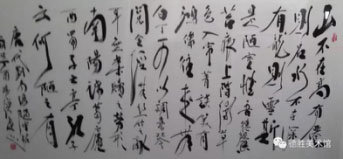 山不在高有仙
则名水不在深
有龙则灵斯
是陋室惟吾德馨
苔痕上阶绿草
色入帘青谈笑有
鸿儒往来无
白丁可以调素琴
阅金经无丝竹之乱
耳无案牍之劳形
南阳诸葛庐
西蜀子云亭孔子
云何陋之有
唐代刘禹锡陋室铭
德胜美术馆